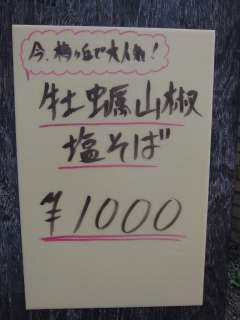 今、梅ヶ丘で大人気!
牡蠣山椒
塩そば
¥1000